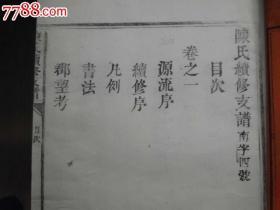 陳氏續修支譜南字四號
目次
卷之一
源流序
續修序
凡例
書法
郡望考
陳氏續修支譜
目次
7788.com